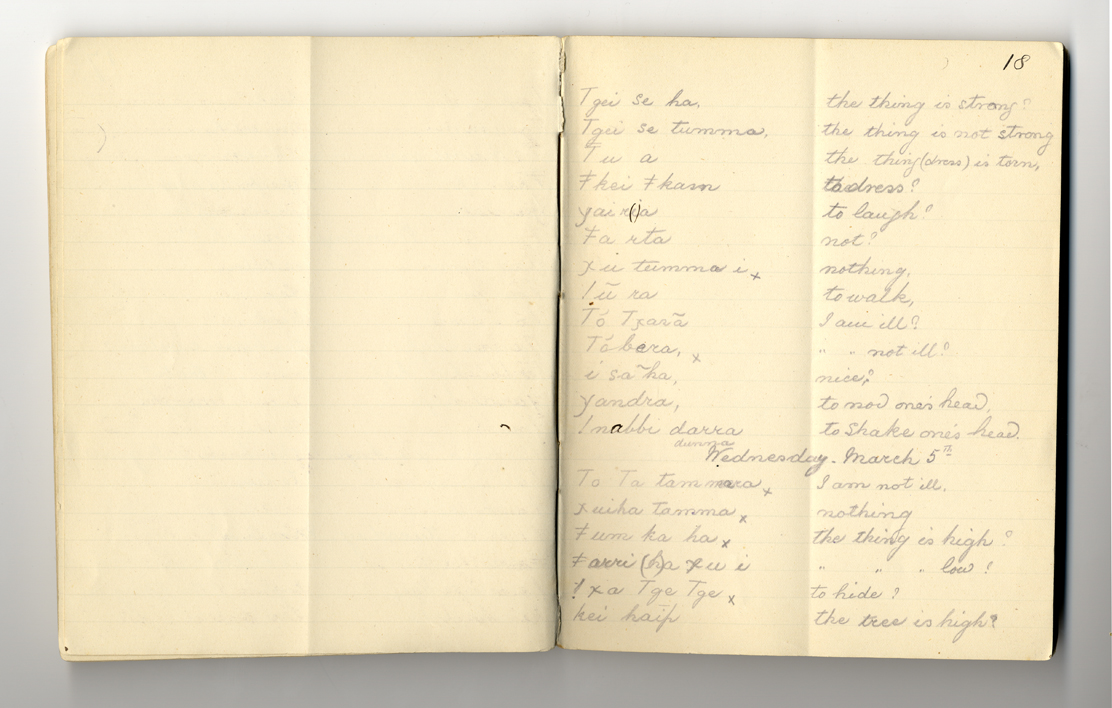 18
Tgei se ha. the thing is strong?
Tgei se tumma. the thing is not strong
Tu a the thing (dress) is torn,
ǂkei ǂkam to dress?
yair()a to laugh?
ǂa rta not?
χu tumma i x nothing,
!ũ ra to walk,
Tó Tχarã I am ill?
Tó bera, x " " not ill?
i sa͂ ha, nice?
yandra, to nod one's head,
!nabbi darra to shake one's head.
dunna
Wednesday. March 5th
To Ta tammara x I am not ill.
χuiha tamma x nothing
ǂum ka ha x the thing is high?
ǂarri (h)a χu i " " " low?
!χa Tge Tge x to hide?
kei haip the tree is high?